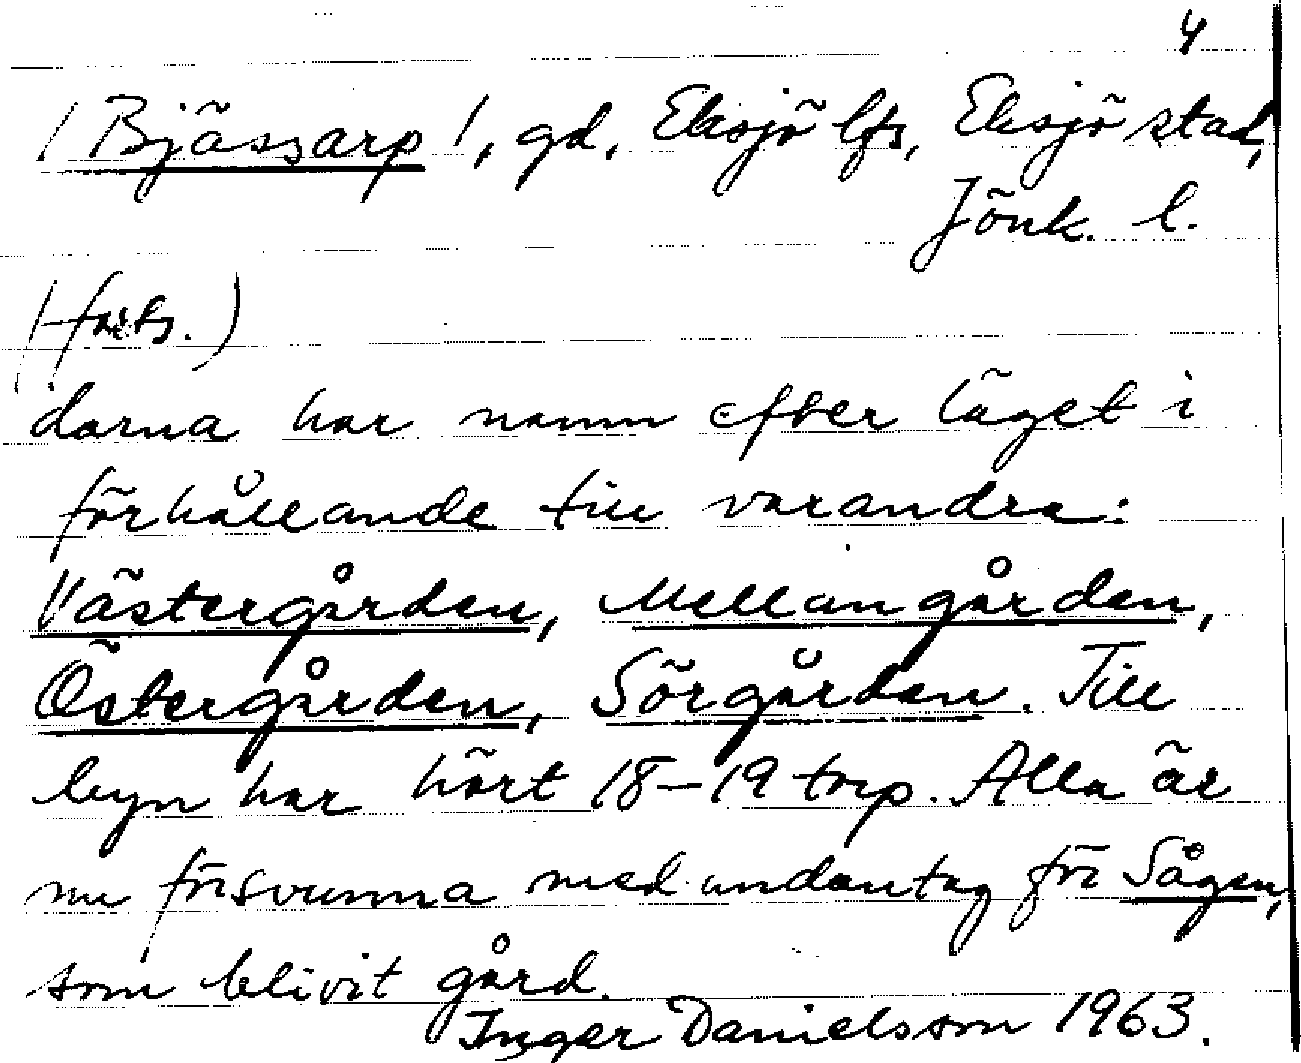 4
/ Bjässarp /, gd, Eksjö lfs, Eksjö stad,
Jönk. l.
(forts.)
darna har namn efter läget i
förhållande till varandra:
Västergården, Mellangården,
Östergården, Sörgården. Till
byn har hört 18-19 torp. Alla är
nu försvunna med undantag för Sågen,
som blivit gård.
Inger Danielsson 1963.